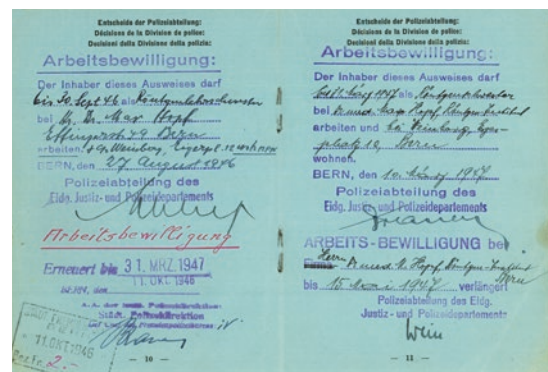 Entscheide der Polizeiabteilung:
Décisions de la Division de police:
Decisioni della Divisione della polizia:
Arbeitsbewilligung:
Der Inhaber dieses Ausweises darf
bis 30. Sept 46 als Röntgenlaborantin
bei Dr. Max Hopf
Effingerstr 49 Bern
arbeiten. Weinberg, Eigerpl. 12
BERN, den 27. August 1946
Polizeiabteilung des
Eidg. Justiz- und Polizeidepartements
Arbeitsbewilligung
Erneuert bis 31. MRZ. 1947
BERN, den 11. OKT. 1946
Städt. Polizeidirektion
11. OKT 1946
2.-
— 10 —
Entscheide der Polizeiabteilung:
Décisions de la Division de police:
Decisioni della Divisione della polizia:
Arbeitsbewilligung:
Der Inhaber dieses Ausweises darf
März 1947 als
bei Dr. med. Max Hopf, Röntgen-Institut
arbeiten und bei Weinberg, Eiger-
platz 12, Bern
wohnen.
BERN, den 10. März 1947
Polizeiabteilung des
Eidg. Justiz- und Polizeidepartements
ARBEITS-BEWILLIGUNG bei
Firma Herrn Dr. med. M. Hopf, Röntgen-Institut
Bern
bis 15. Mai 1947 verlängert
Polizeiabteilung des Eidg.
Justiz- und Polizeidepartements
— 11 —